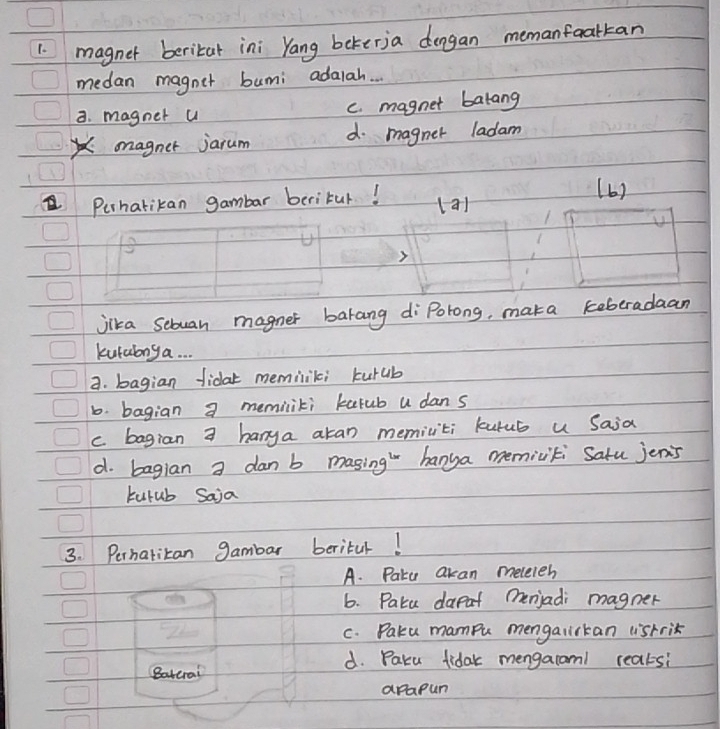 1. magnet berikut ini yang bekerja dengan memanfaatkan
medan magnet bumi adalah...
a. magnet u
c. magnet batang
b. magnet jarum
d. magnet ladam
2 Perhatikan gambar berikut !
(a)
(b)
S
U
U
jika sebuah magnet batang di Potong, maka keberadaan
kutubnya...
a. bagian tidak memiliki kutub
b. bagian a memiliki kutub u dan s
c. bagian a hanya akan memiliki kutub u saja
d. bagian a dan b masing² hanya memiliki satu jenis
kutub saja
3. Perhatikan gambar berikut !
A. Paku akan meleleh
b. Paku dapat menjadi magnet
c. Paku mampu mengalirkan listrik
d. Paku tidak mengalami reaksi
apapun
Baterai